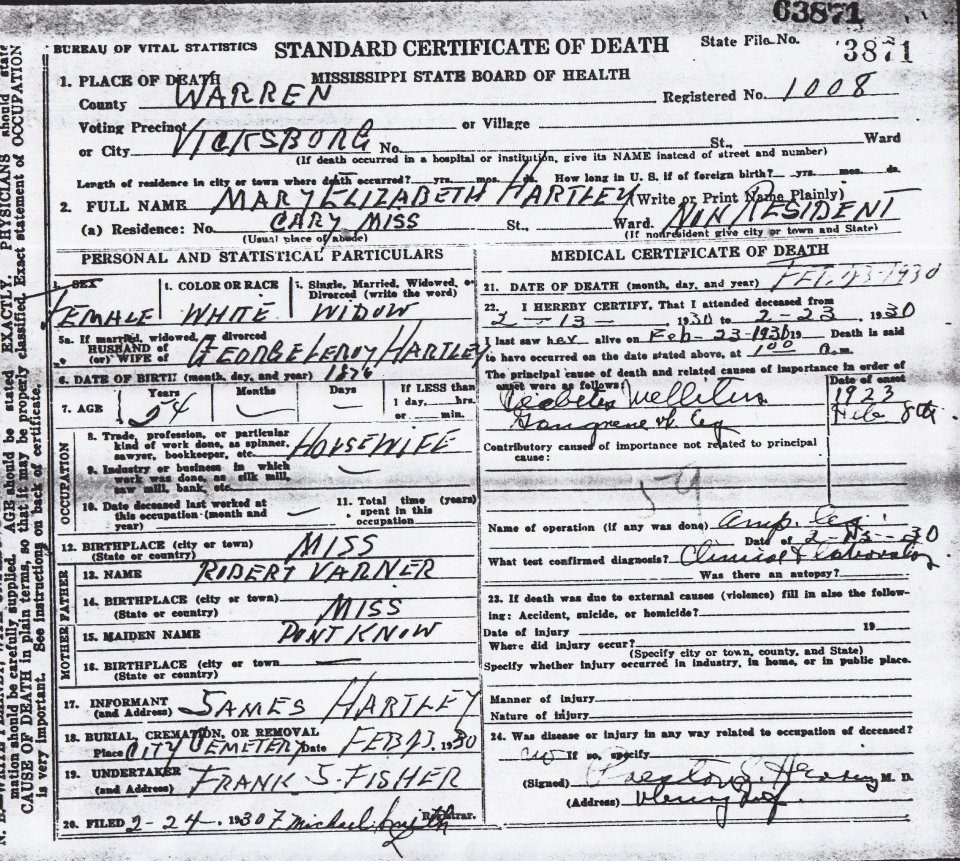 63871
BUREAU OF VITAL STATISTICS STANDARD CERTIFICATE OF DEATH State File No. 3871
1. PLACE OF DEATH MISSISSIPPI STATE BOARD OF HEALTH
County WARREN Registered No. 1008
Voting Precinct or Village
or City VICKSBURG No. St., Ward
(If death occurred in a hospital or institution, give its NAME instead of street and number)
Length of residence in city or town where death occurred? yrs. mos. ds. How long in U. S. if of foreign birth? yrs. mos. ds.
2. FULL NAME MARY ELIZABETH HARTLEY (Write or Print Name Plainly)
(a) Residence: No. CARY MISS St., Ward. NON RESIDENT
(Usual place of abode) (If nonresident give city or town and State)
PERSONAL AND STATISTICAL PARTICULARS
SEX
FEMALE
4. COLOR OR RACE
WHITE
5. Single, Married, Widowed, or Divorced (write the word)
WIDOW
5a. If married, widowed, or divorced
HUSBAND of
(or) WIFE of GEORGE LEROY HARTLEY
6. DATE OF BIRTH (month, day, and year) 1876
7. AGE Years 54 Months Days If LESS than
1 day, hrs.
or min.
OCCUPATION
8. Trade, profession, or particular
kind of work done, as spinner,
sawyer, bookkeeper, etc. HOUSEWIFE
9. Industry or business in which
work was done, as silk mill,
saw mill, bank, etc.
10. Date deceased last worked at
this occupation (month and
year)
11. Total time (years)
spent in this
occupation
12. BIRTHPLACE (city or town) MISS
(State or country)
FATHER
13. NAME ROBERT VARNER
14. BIRTHPLACE (city or town) MISS
(State or country)
MOTHER
15. MAIDEN NAME DONT KNOW
16. BIRTHPLACE (city or town
(State or country)
17. INFORMANT JAMES HARTLEY
(and Address)
18. BURIAL, CREMATION, OR REMOVAL
Place CITY CEMETERY Date FEB 23, 1930
19. UNDERTAKER FRANK J FISHER
(and Address)
20. FILED 2-24, 1930 F Michael Smith Registrar.
MEDICAL CERTIFICATE OF DEATH
21. DATE OF DEATH (month, day, and year) FEB, 23-1930
22. I HEREBY CERTIFY, That I attended deceased from
2-13- 1930 to 2-23, 1930
I last saw her alive on Feb-23-1930 19 Death is said
to have occurred on the date stated above, at 1 00 a.m.
The principal cause of death and related causes of importance in order of
onset were as follows: Date of onset
Diabetes Mellitus 1923
Gangrene of leg Feb 8th
Contributory causes of importance not related to principal
cause:
59
Name of operation (if any was done) Amp. leg
Date of 30
What test confirmed diagnosis? Clinical & laboratory
Was there an autopsy?
23. If death was due to external causes (violence) fill in also the follow-
ing: Accident, suicide, or homicide?
Date of injury 19
Where did injury occur?
(Specify city or town, county, and State)
Specify whether injury occurred in industry, in home, or in public place.
Manner of injury
Nature of injury
24. Was disease or injury in any way related to occupation of deceased?
no If so, specify
(Signed) M. D.
(Address)
mation should be carefully supplied. AGE should be stated EXACTLY. PHYSICIANS should state
CAUSE OF DEATH in plain terms, so that it may be properly classified. Exact statement of OCCUPATION
is very important. See instructions on back of certificate.